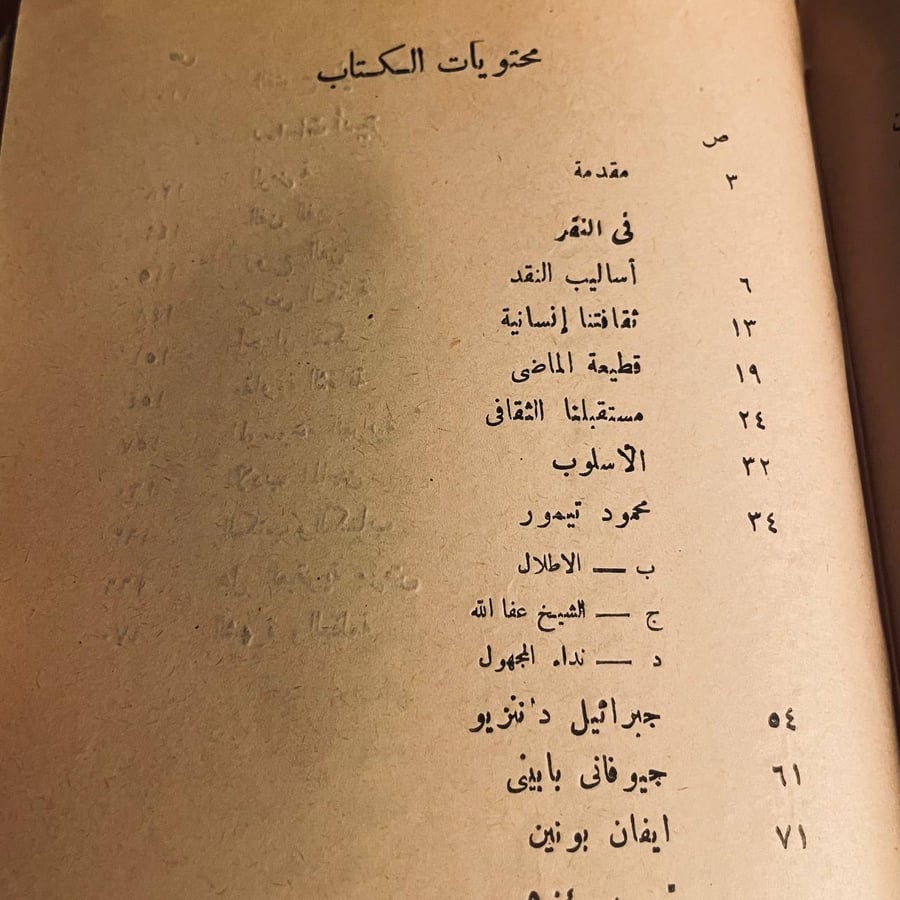 محتويات الكتاب
ص
٣ مقدمة
فى النقر
٦ أساليب النقد
١٣ ثقافتنا إنسانية
١٩ قطيعة الماضى
٢٤ مستقبلنا الثقافى
٣٢ الأسلوب
٣٤ محمود تيمور
ب — الاطلال
ج — الشيخ عفا الله
د — نداء المجهول
٥٤ جبرائيل د'ننزيو
٦١ جيوفانى بابينى
٧١ ايفان بونين